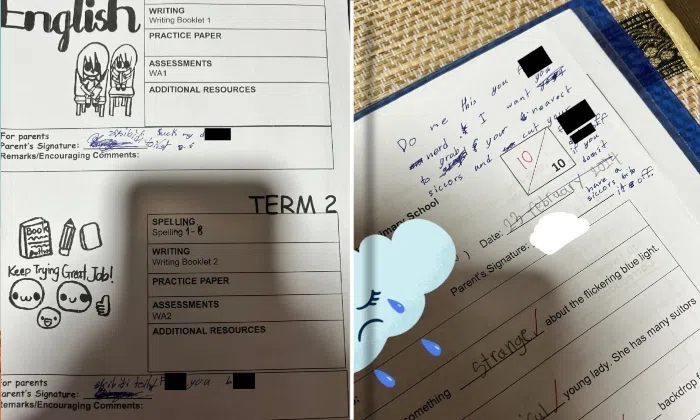 English
WRITING
Writing Booklet 1
PRACTICE PAPER
ASSESSMENTS
WA1
ADDITIONAL RESOURCES
For parents
Parent's Signature: suck my d
Remarks/Encouraging Comments:
TERM 2
SPELLING
Spelling 1-8
WRITING
Writing Booklet 2
PRACTICE PAPER
ASSESSMENTS
WA2
ADDITIONAL RESOURCES
Book
Keep Trying Great Job!
For parents
Parent's Signature: you b
Remarks/Encouraging Comments:
Do me this you f
nerd I want you
to grab your nearest
siccors and cut your
off
if you
don't
have
siccors bite
it off.
10
10
mary School
Date: 23 February
Parent's Signature:
omething strange about the flickering blue light.
young lady. She has many suitors
backdrop f